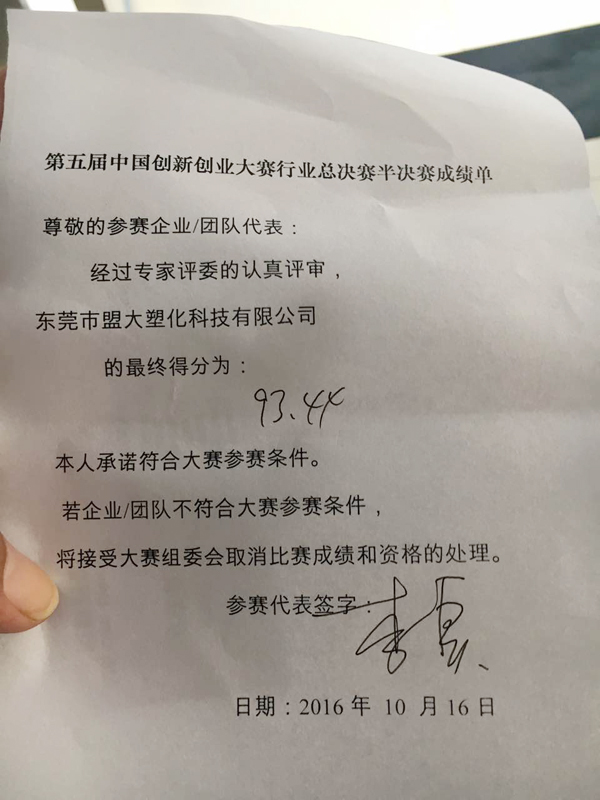 第五届中国创新创业大赛行业总决赛半决赛成绩单
尊敬的参赛企业/团队代表：
经过专家评委的认真评审，
东莞市盟大塑化科技有限公司
的最终得分为：
93.44
本人承诺符合大赛参赛条件。
若企业/团队不符合大赛参赛条件，
将接受大赛组委会取消比赛成绩和资格的处理。
参赛代表签字：
日期：2016 年 10 月 16 日